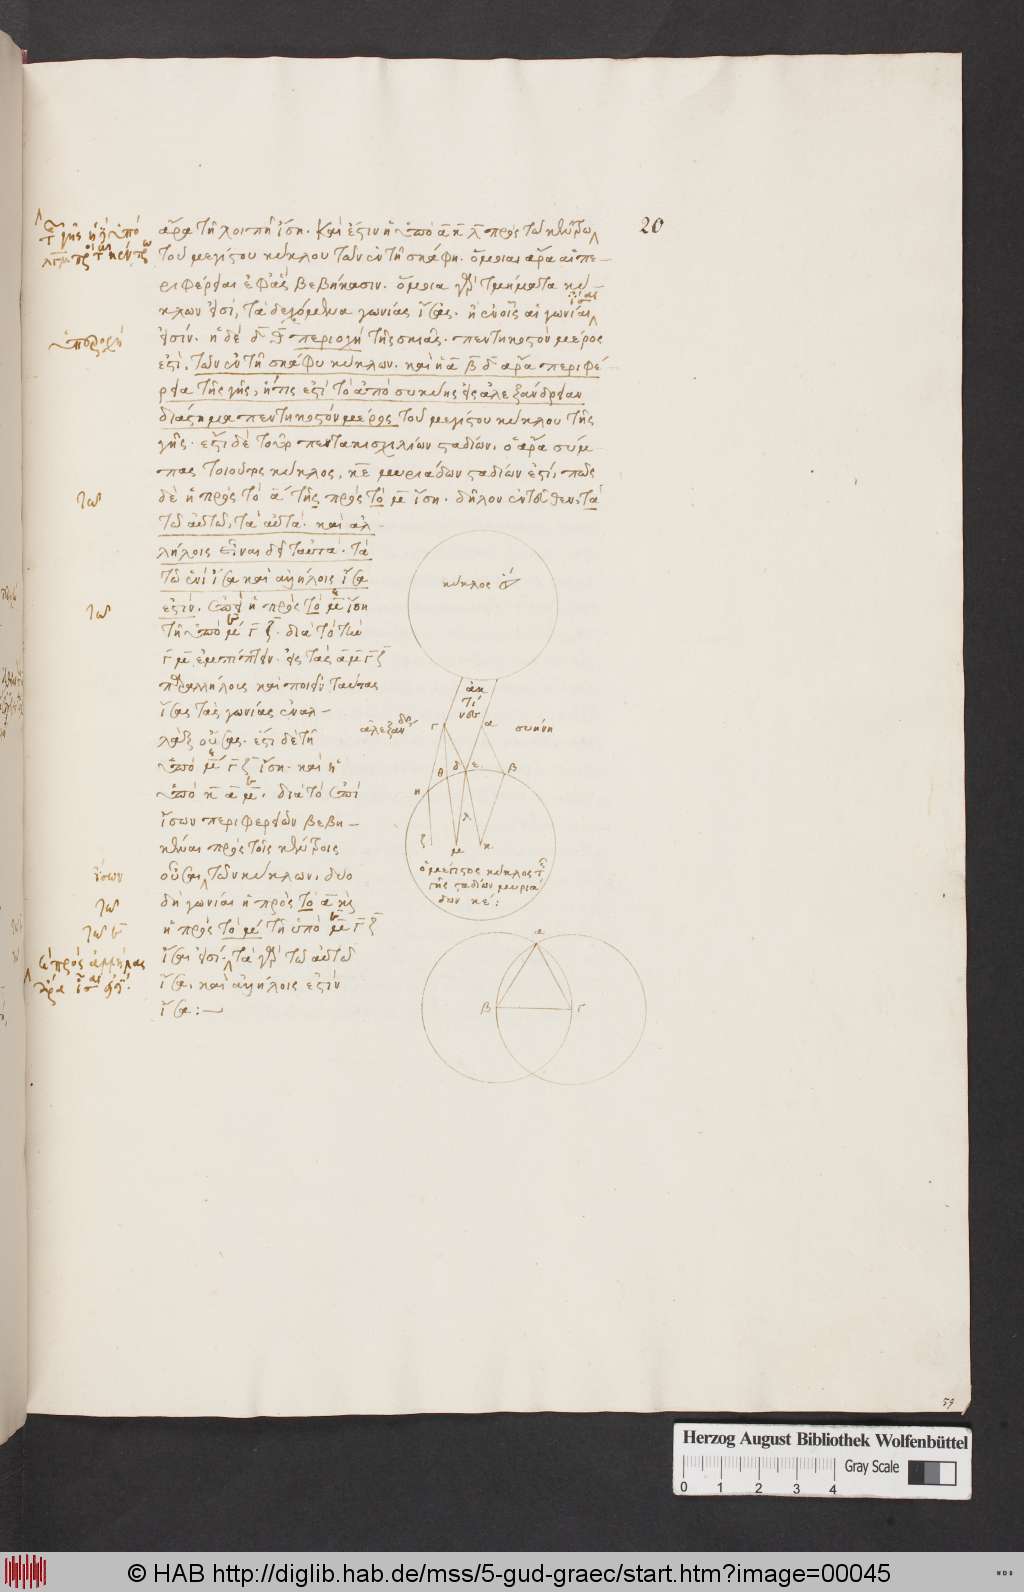 20
ἄρα τῇ λοιπῇ ἴση. καὶ ἔστιν ἡ ὑπὸ α̅ η̅ λ̅ πρὸς τῷ κέντρῳ
τοῦ μεγίστου κύκλου τῶν ἐν τῇ σκάφῃ. ὅμοιαι ἄρα αἱ πε-
ριφέρειαι ἐφ' ἃς βεβήκασιν. ὅμοια γὰρ τμήματα κύ-
κλων εἰσὶ, τὰ δεχόμενα γωνίας ἴσας. ἢ ἐν οἷς αἱ γωνίαι
εἰσίν. ἡ δὲ περιοχὴ τῆς σκιᾶς. πεντηκοστὸν μέρος
ἐστὶ, τῶν ἐν τῇ σκάφῃ κύκλων. καὶ ἡ α̅ β̅ δ̅ ἄρα περιφέ-
ρεια τῆς γῆς, ἥτις ἐστὶ τὸ ἀπὸ συήνης εἰς ἀλεξάνδρειαν
διάστημα πεντηκοστὸν μέρος τοῦ μεγίστου κύκλου τῆς
γῆς. ἐστὶ δὲ τοῦτο πεντακισχιλίων σταδίων. ὁ ἄρα σύμ-
πας τοιοῦτος κύκλος, κ̅ε̅ μυριάδων σταδίων ἐστί, πῶς
δὲ ἡ πρὸς τὸ α̅ τῆς πρὸς τὸ μ̅ ἴση. δῆλον ἐντεῦθεν, τὰ
τῷ αὐτῷ, τὰ αὐτά. καὶ ἀλ-
λήλοις εἶναι δεῖ ταὐτά. τὰ
τῷ ἑνὶ ἴσα καὶ ἀλλήλοις ἴσα
ἐστίν. ἡ πρὸς τὸ μ̅ ἴση
τῇ ὑπὸ μ̅ γ̅ ζ̅. διὰ τὸ τὴν
γ̅ μ̅ ἐμπίπτειν. εἰς τὰς α̅ μ̅ γ̅ ζ̅
παραλλήλους καὶ ποιεῖν ταύτας
ἴσας τὰς γωνίας ἐναλ-
λὰξ οὔσας. ἐστὶ δὲ τῇ
ὑπὸ μ̅ γ̅ ζ̅ ἴση. καὶ ἡ
ὑπὸ κ̅ α̅ μ̅. διὰ τὸ ἐπὶ
ἴσων περιφερειῶν βεβη-
κέναι πρὸς τοῖς κέντροις
οὖσαι τῶν κύκλων. δύο
δὴ γωνίαι ἡ πρὸς τὸ α̅ κ̅
ἡ πρὸς τὸ μ̅ τῇ ὑπὸ μ̅ γ̅ ζ̅
ἴσαι εἰσί, τὰ γὰρ τῷ αὐτῷ
ἴσα, καὶ ἀλλήλοις ἐστὶν
ἴσα:
ὑπεροχὴ
ἴσων
κύκλος
ἀκ
τῖ
νες
ἀλεξαν
γ
α
συήνη
θ
δ
ε
β
η
λ
ζ
μ
κ
ὁ μέγιστος κύκλος
γῆς σταδίων μυριά
δων κε:
α
β
γ
59
Herzog August Bibliothek Wolfenbüttel
Gray Scale
0 1 2 3 4
© HAB http://diglib.hab.de/mss/5-gud-graec/start.htm?image=00045